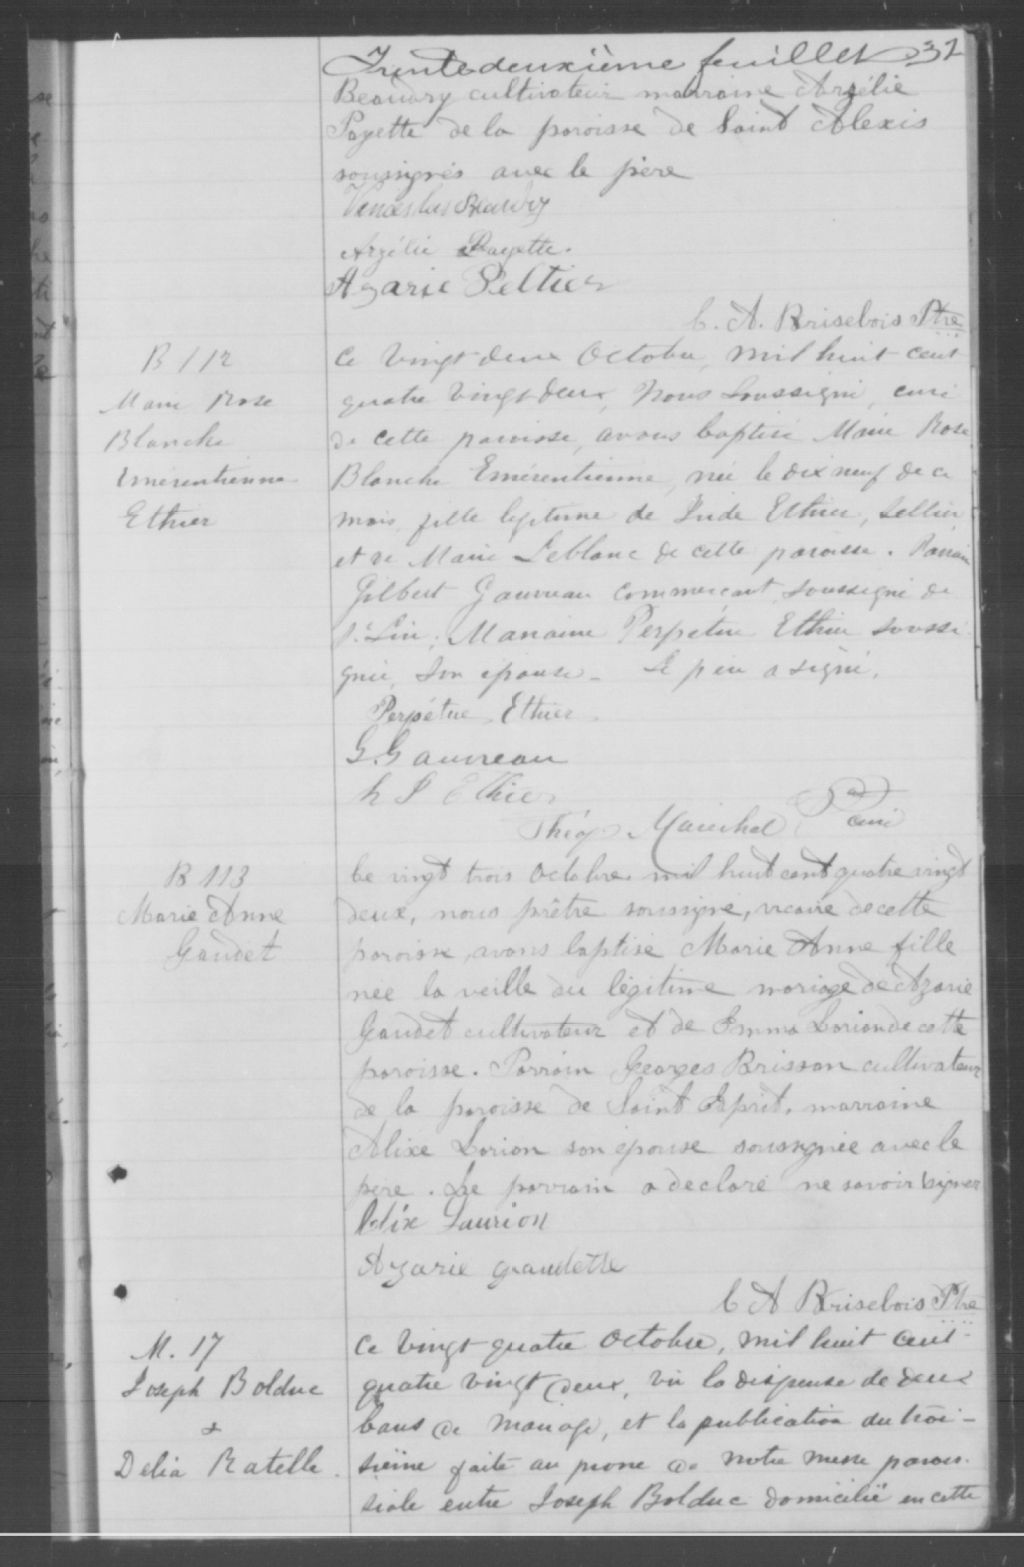 Trente deuxième feuillet 32
Beaudry cultivateur marraine Arzélie
Payette de la paroisse de Saint Alexis
soussignés avec le père
Venceslas Beaudry
Arzélie Payette.
Azarie Peltier
C. A. Brisebois Ptre
B 112
Marie Rose
Blanche
Emérentienne
Ethier
Ce vingt deux Octobre, mil huit cent
quatre vingt deux, Nous Soussigné, curé
de cette paroisse, avons baptisé Marie Rose
Blanche Emérentienne, née le dix neuf de ce
mois, fille legitime de Jude Ethier, Sellier
et de Marie Leblanc de cette paroisse. Parrain
Gilbert Gauvreau commerçant, soussigné de
St Lin; Marraine Perpétue Ethier soussi
gnée, son épouse - Le père a signé.
Perpétue Ethier
G. Gauvreau
J Ethier
Théop Maréchal Ptre curé
B 113
Marie Anne
Gaudet
Ce vingt trois Octobre mil huit cent quatre vingt
deux, nous prêtre soussigné, vicaire de cette
paroisse, avons baptisé Marie Anne fille
née la veille du légitime mariage de Azarie
Gaudet cultivateur et de Emma Lorion de cette
paroisse. Parrain Georges Brisson cultivateur
de la paroisse de Saint Esprit, marraine
Alixe Lorion son épouse soussignée avec le
père. Le parrain a déclaré ne savoir signer
Alix Laurion
Azarie gaudette
C A Brisebois Ptre
M. 17
Joseph Bolduc
&
Delia Ratelle.
Ce vingt quatre Octobre, mil huit cent
quatre vingt deux, vû la dispense de deux
bans de mariage, et la publication du troi-
sième faite au prone de notre messe parois-
siale entre Joseph Bolduc domicilié en cette